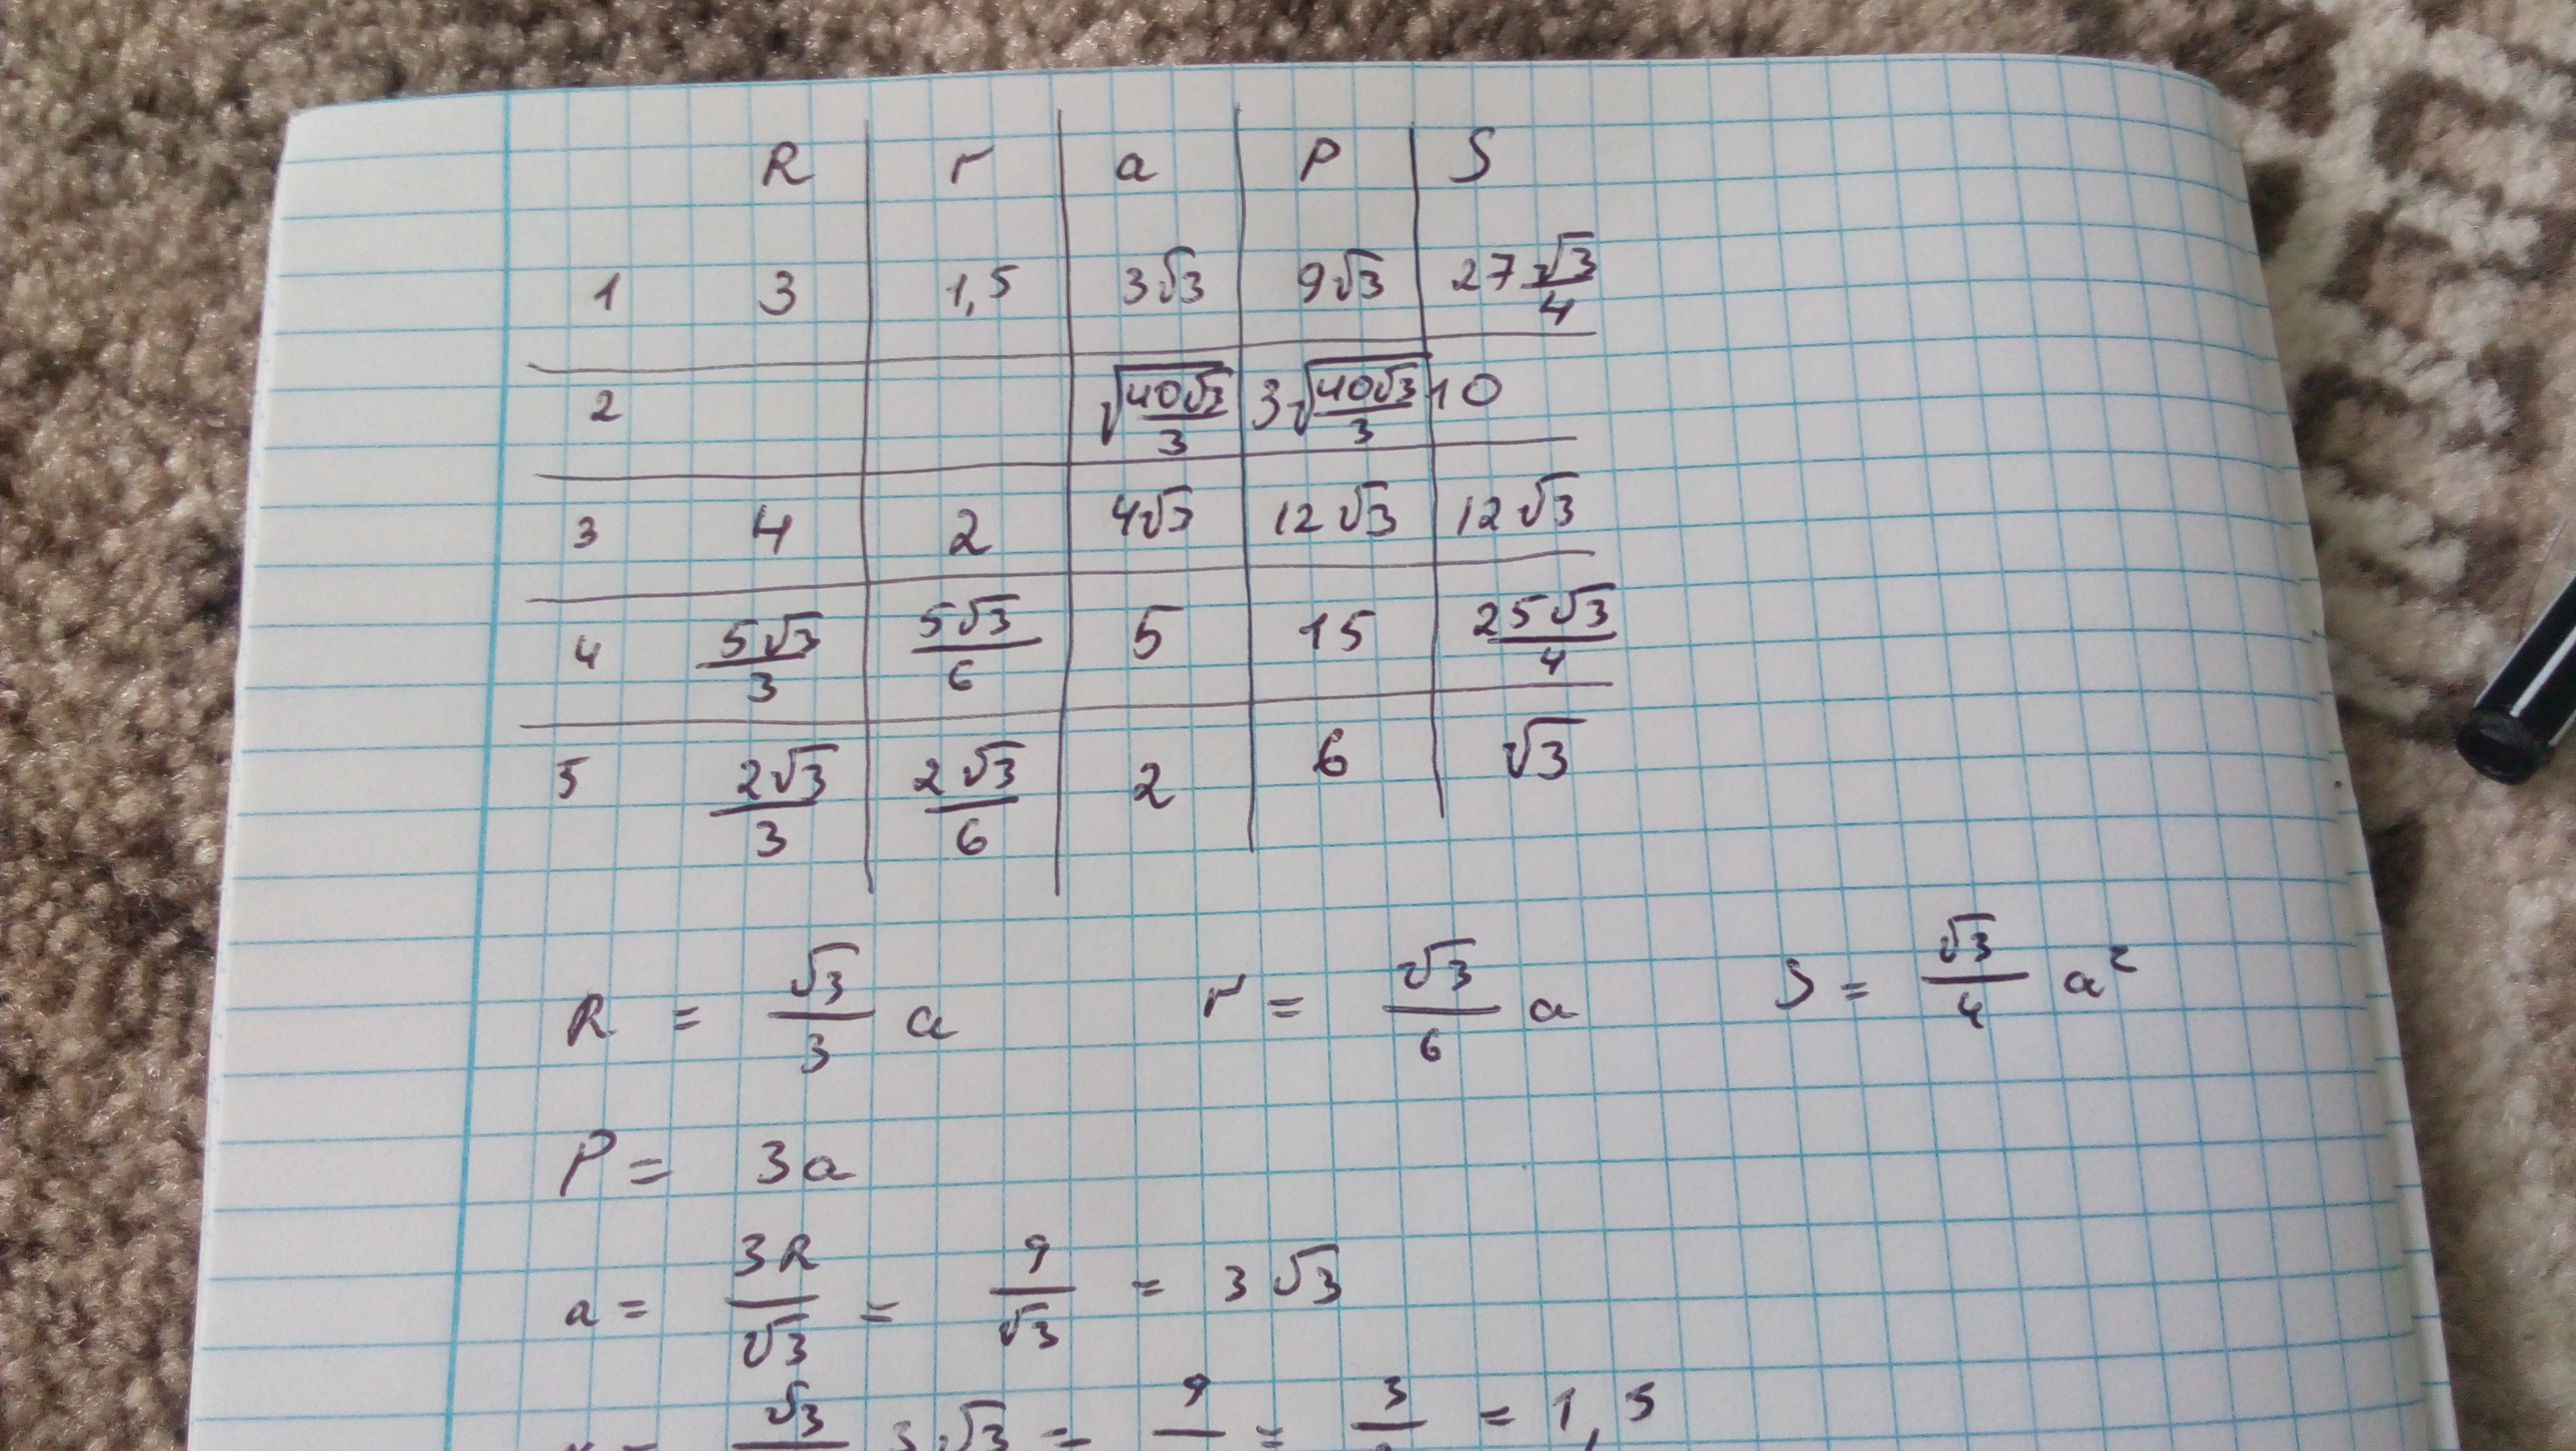 R r a P S
1 3 1,5 3√3 9√3 27 √3/4
2 √(40√3/3) 3√(40√3/3) 10
3 4 2 4√3 12√3 12√3
4 5√3/3 5√3/6 5 15 25√3/4
5 2√3/3 2√3/6 2 6 √3
R = √3/3 a r = √3/6 a S = √3/4 a²
P = 3a
a = 3R/√3 = 9/√3 = 3√3
√3 3√3 = 9 = 3 = 1,5